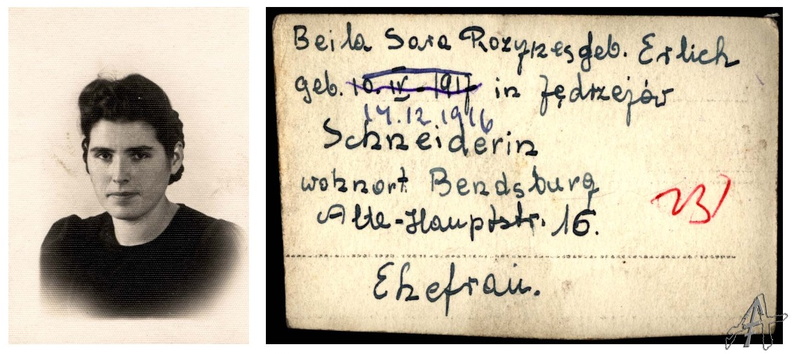 Beila Sara Rozynes geb. Erlich
geb. 10. IV. 1917 in Jędrzejów
14.12.1916
Schneiderin
wohnort Bendsburg
Alte-Hauptstr. 16.
23
Ehefrau.